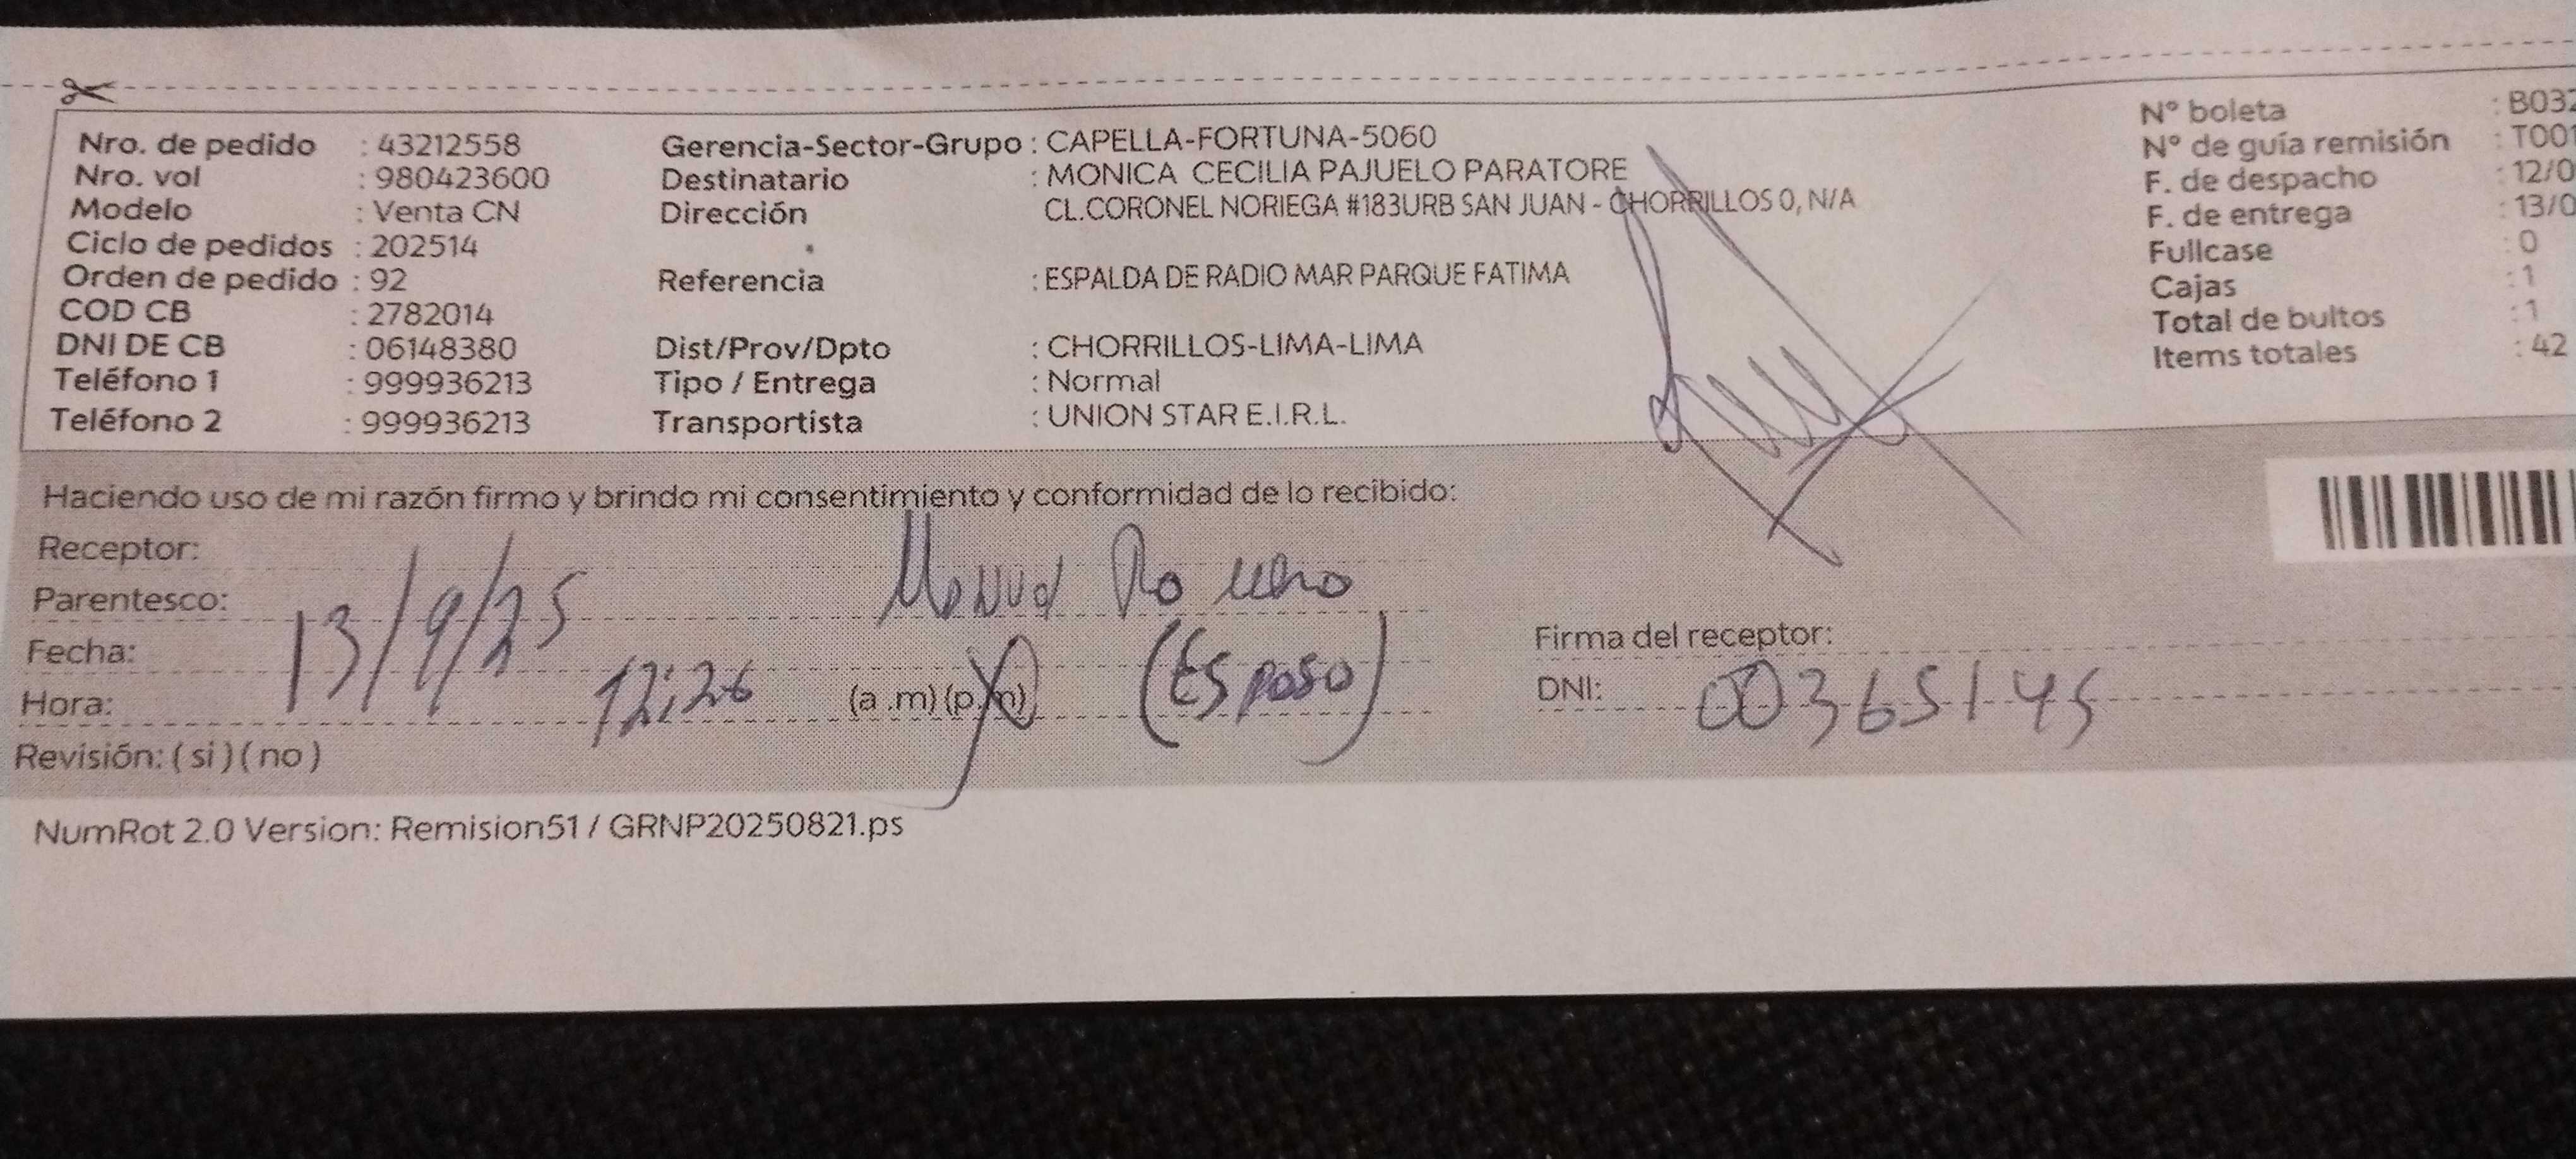 Nro. de pedido : 43212558
Nro. vol : 980423600
Modelo : Venta CN
Ciclo de pedidos : 202514
Orden de pedido : 92
COD CB : 2782014
DNI DE CB : 06148380
Teléfono 1 : 999936213
Teléfono 2 : 999936213
Gerencia-Sector-Grupo : CAPELLA-FORTUNA-5060
Destinatario : MONICA CECILIA PAJUELO PARATORE
Dirección CL.CORONEL NORIEGA #183URB SAN JUAN - CHORRILLOS 0, N/A
Referencia : ESPALDA DE RADIO MAR PARQUE FATIMA
Dist/Prov/Dpto : CHORRILLOS-LIMA-LIMA
Tipo / Entrega : Normal
Transportista : UNION STAR E.I.R.L.
N° boleta : B032
N° de guía remisión : T001
F. de despacho : 12/0
F. de entrega : 13/0
Fullcase : 0
Cajas : 1
Total de bultos : 1
Items totales : 42
Haciendo uso de mi razón firmo y brindo mi consentimiento y conformidad de lo recibido:
Receptor: Manuel
Parentesco: (Esposo)
Fecha: 13/9/25
Hora: 12:26 (a .m) (p.m)
Revisión: ( si ) ( no )
Firma del receptor:
DNI: 00365145
NumRot 2.0 Version: Remision51 / GRNP20250821.ps